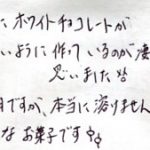 に ホワイトチョコレートが
いように 作って いるのが 凄
思いました
ですが、本当に 溶けません
な お菓子です